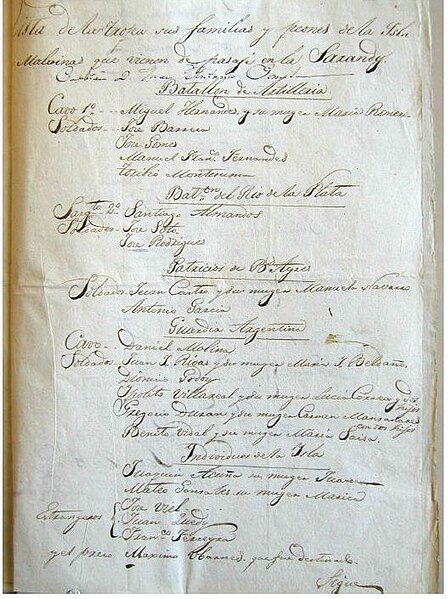 Lista de la tropa sus familias y peones de la Isla
Malvinas que vienen de pasaje en la Sarandy.
Capitan D. Juan Antonio Gomes
Batallon de Artilleria
Cavo 1º - Miguel Hernandes y su muger Maria Romero
Soldados - José Barrera
José Gomes
Manuel Franco Fernandes
Toribio Montesuma
Baton del Rio de la Plata
Sargto 2º Santiago Almandos
Soldados José Soto
José Rodrigues
Patricios de Bs Ayres
Soldados Juan Castro y su muger Manuela Navarro
Antonio Garcia
Guardia Argentina
Cavo - Daniel Molina
Soldados - Juan J. Rivas y su muger Maria I. Beldaño
Dionicio Godoy
Ipolito Villarreal y su muger Lucia Correa y dos hijos
Gregorio Duran y su muger Carmen Mansanares con dos hijos
Benito Vidal y su muger Maria Saisa
Individuos de la Isla
Juaquin Acuña su muger Juana
Mateo Gonsales su muger Marica
Estrangeros José Viel
Juan Quedy
Franco Ferreyra
y el preso Maximo Warnes, que fue destinado.
Sigue